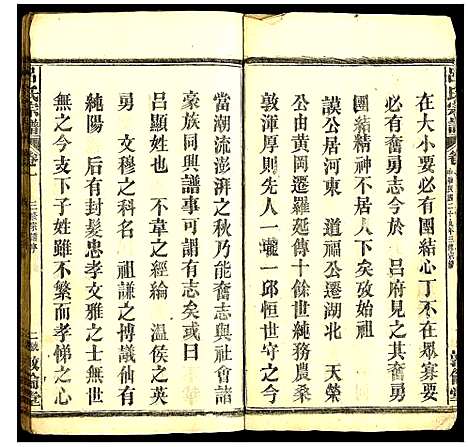 呂氏宗譜
卷
在大小要必有團結心丁不在眾寡要
必有奮勇志今於 呂府見之其奮勇
團結精神不居人下矣攷始祖 天榮
謨公居河東 道福公遷湖北
公由黃岡遷羅延傳十餘世純務農桑
敦渾厚則先人一壠一邱恒世守之今
敦倫堂
當潮流澎湃之秋乃能奮志與社會諸
豪族同興譜事可謂有志矣或曰
呂顯姓也 不韋之經綸 溫侯之英
勇 文穆之科名 祖謙之博議他有
純陽 后有封髮忠孝文雅之士無世
無之今支下子姓雖不繁而孝悌之心
呂氏宗譜
卷一
敦倫堂